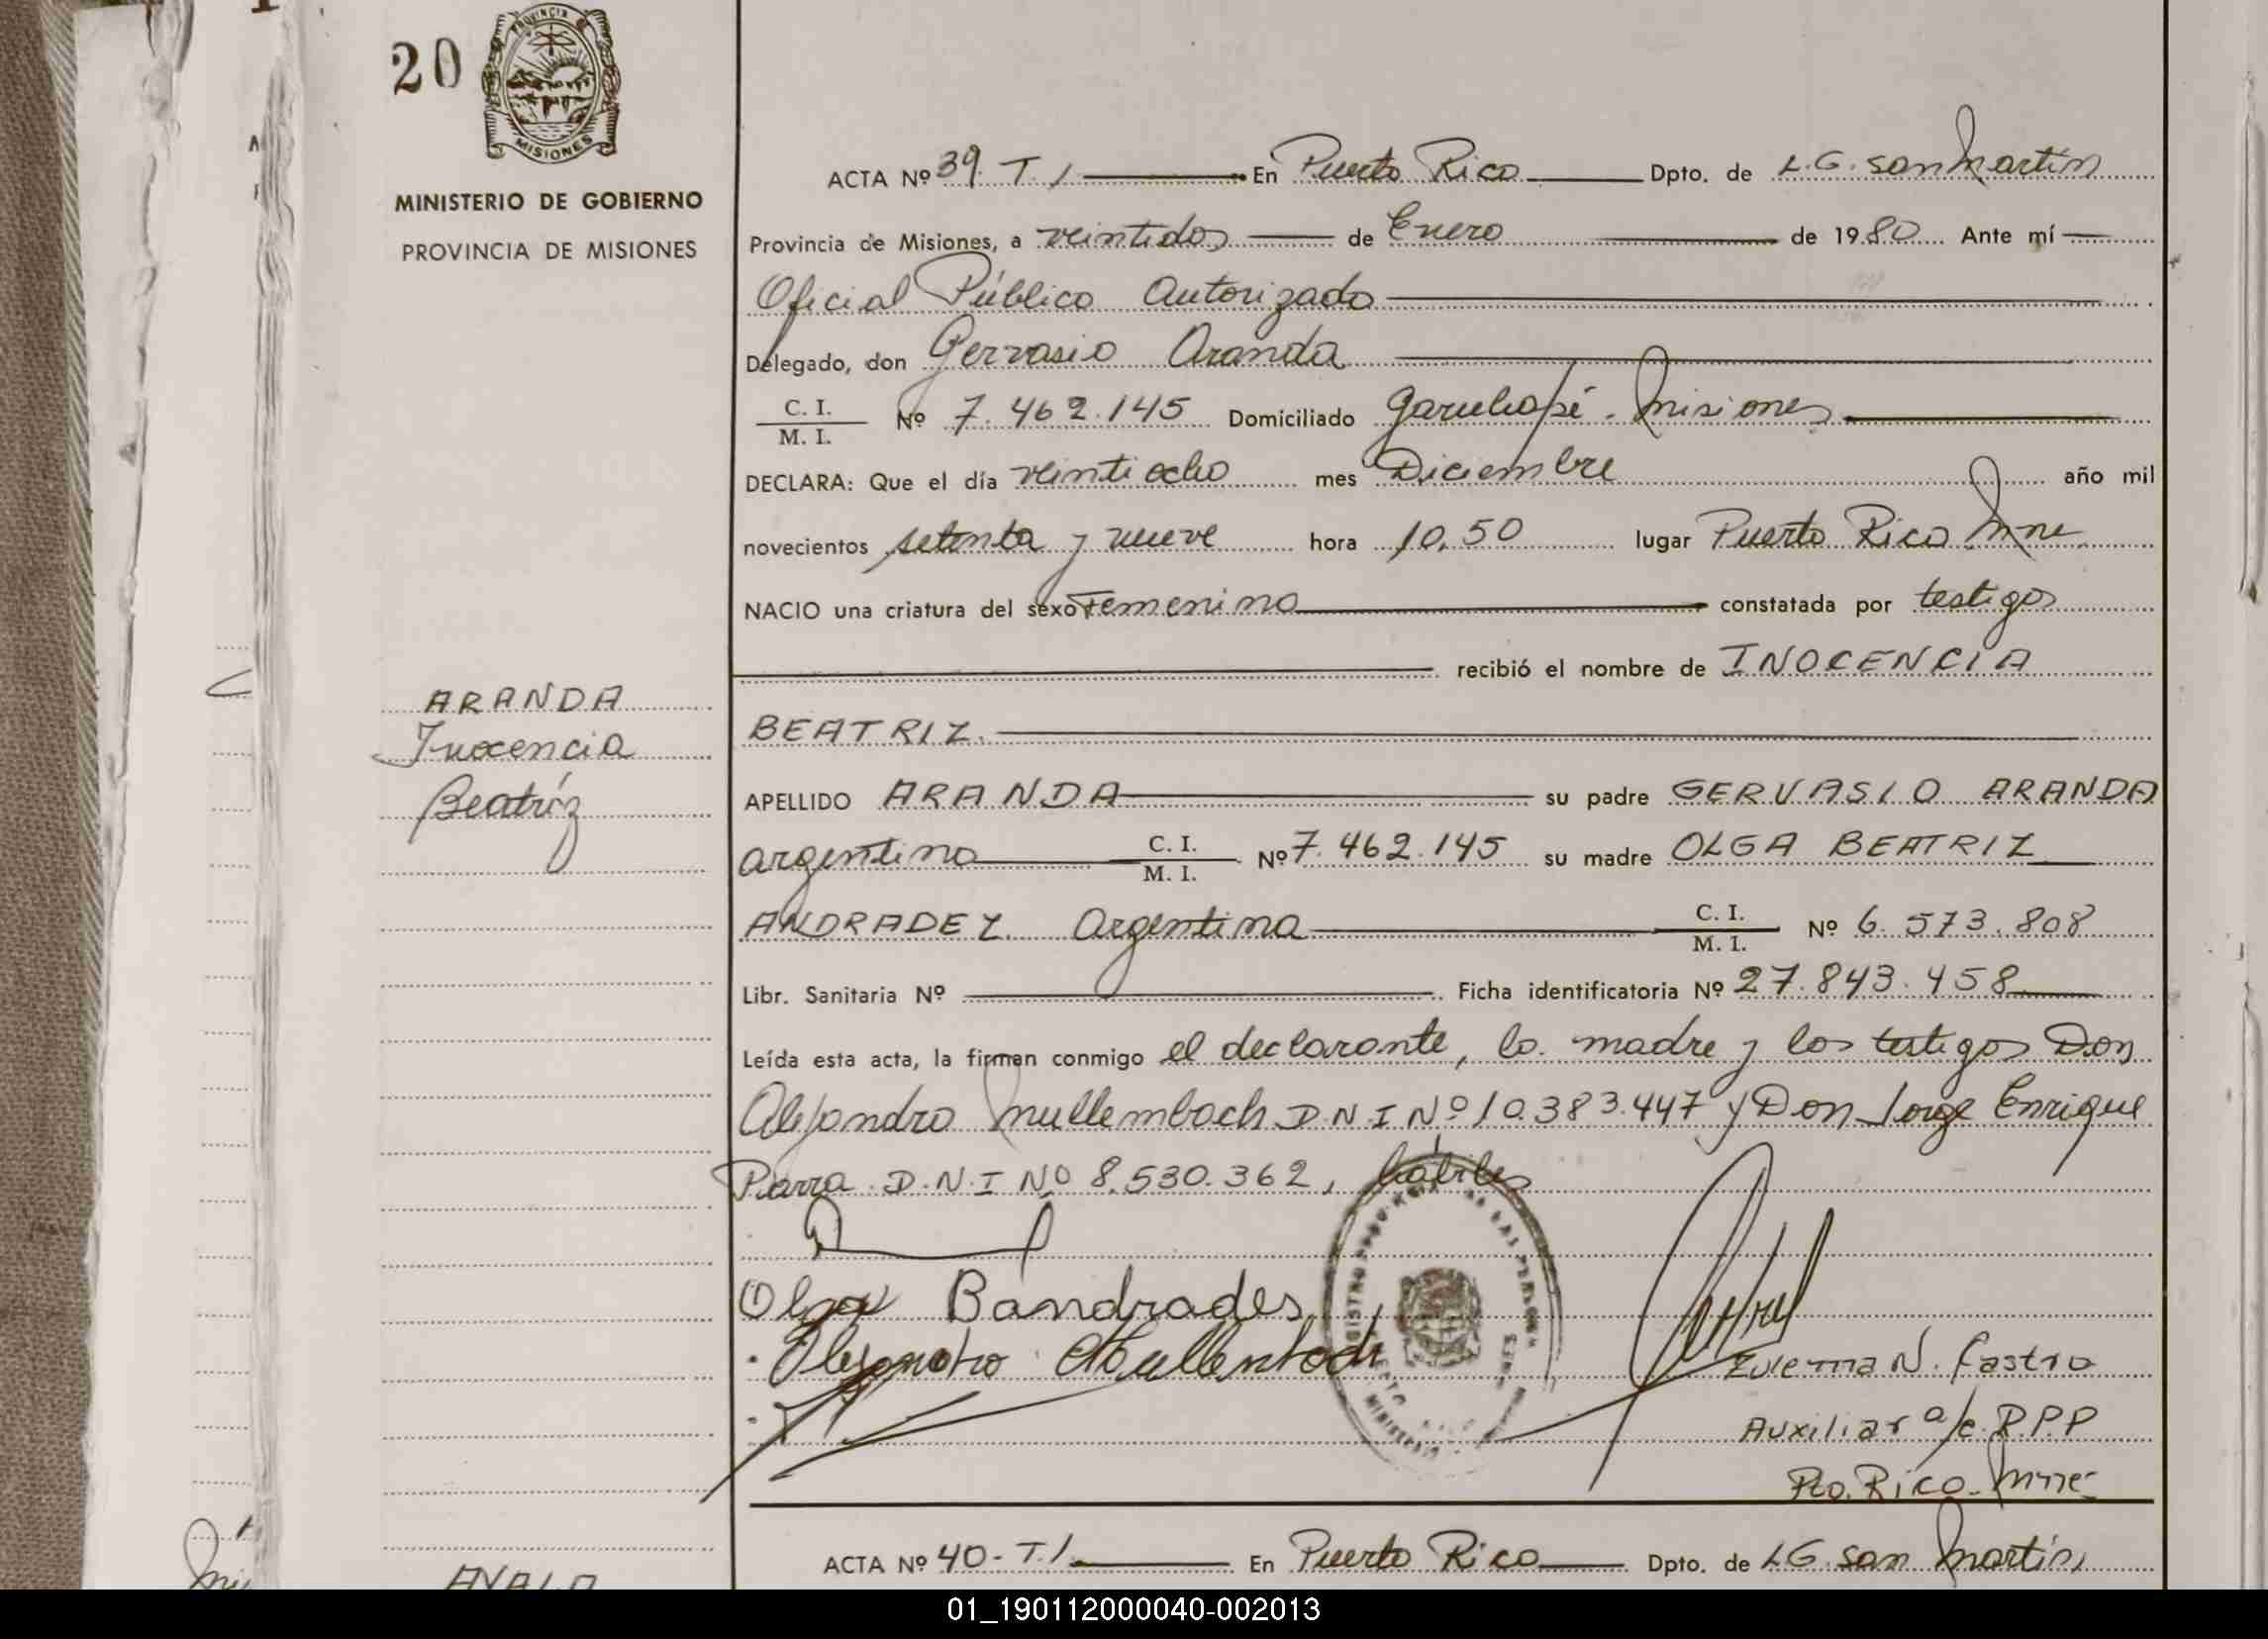 20
PROVINCIA DE
MISIONES
MINISTERIO DE GOBIERNO
PROVINCIA DE MISIONES
ARANDA
Inocencia
Beatríz
ACTA Nº 39. T. I En Puerto Rico Dpto. de L.G. San Martín
Provincia de Misiones, a veintidos de Enero de 1980 Ante mí
Oficial Público Autorizado
Delegado, don Gervasio Aranda
C. I.
M. I. Nº 7.462.145 Domiciliado Garuhapé. Misiones
DECLARA: Que el día veintiocho mes Diciembre año mil
novecientos setenta y nueve hora 10,50 lugar Puerto Rico Mne
NACIO una criatura del sexo Femenino constatada por testigos
recibió el nombre de INOCENCIA
BEATRIZ.
APELLIDO ARANDA su padre GERVASIO ARANDA
argentino C. I.
M. I. Nº 7.462.145 su madre OLGA BEATRIZ
ANDRADEZ. Argentina C. I.
M. I. Nº 6.573.808
Libr. Sanitaria Nº Ficha identificatoria Nº 27.843.458
Leída esta acta, la firman conmigo el declarante, la madre y los testigos Don
Alejandro Mullembach D.N.I Nº 10.383.447 y Don Jorge Enrique
Parra. D.N.I Nº 8.530.362, hábiles
Olga Bandrades
Alejandro Mullenbach
Zulema N. Castro
Auxiliar a/c. R.P.P
Pto. Rico. Mnes
ACTA Nº 40- T.I En Puerto Rico Dpto. de L.G. San Martín
AYALA
01_190112000040-002013